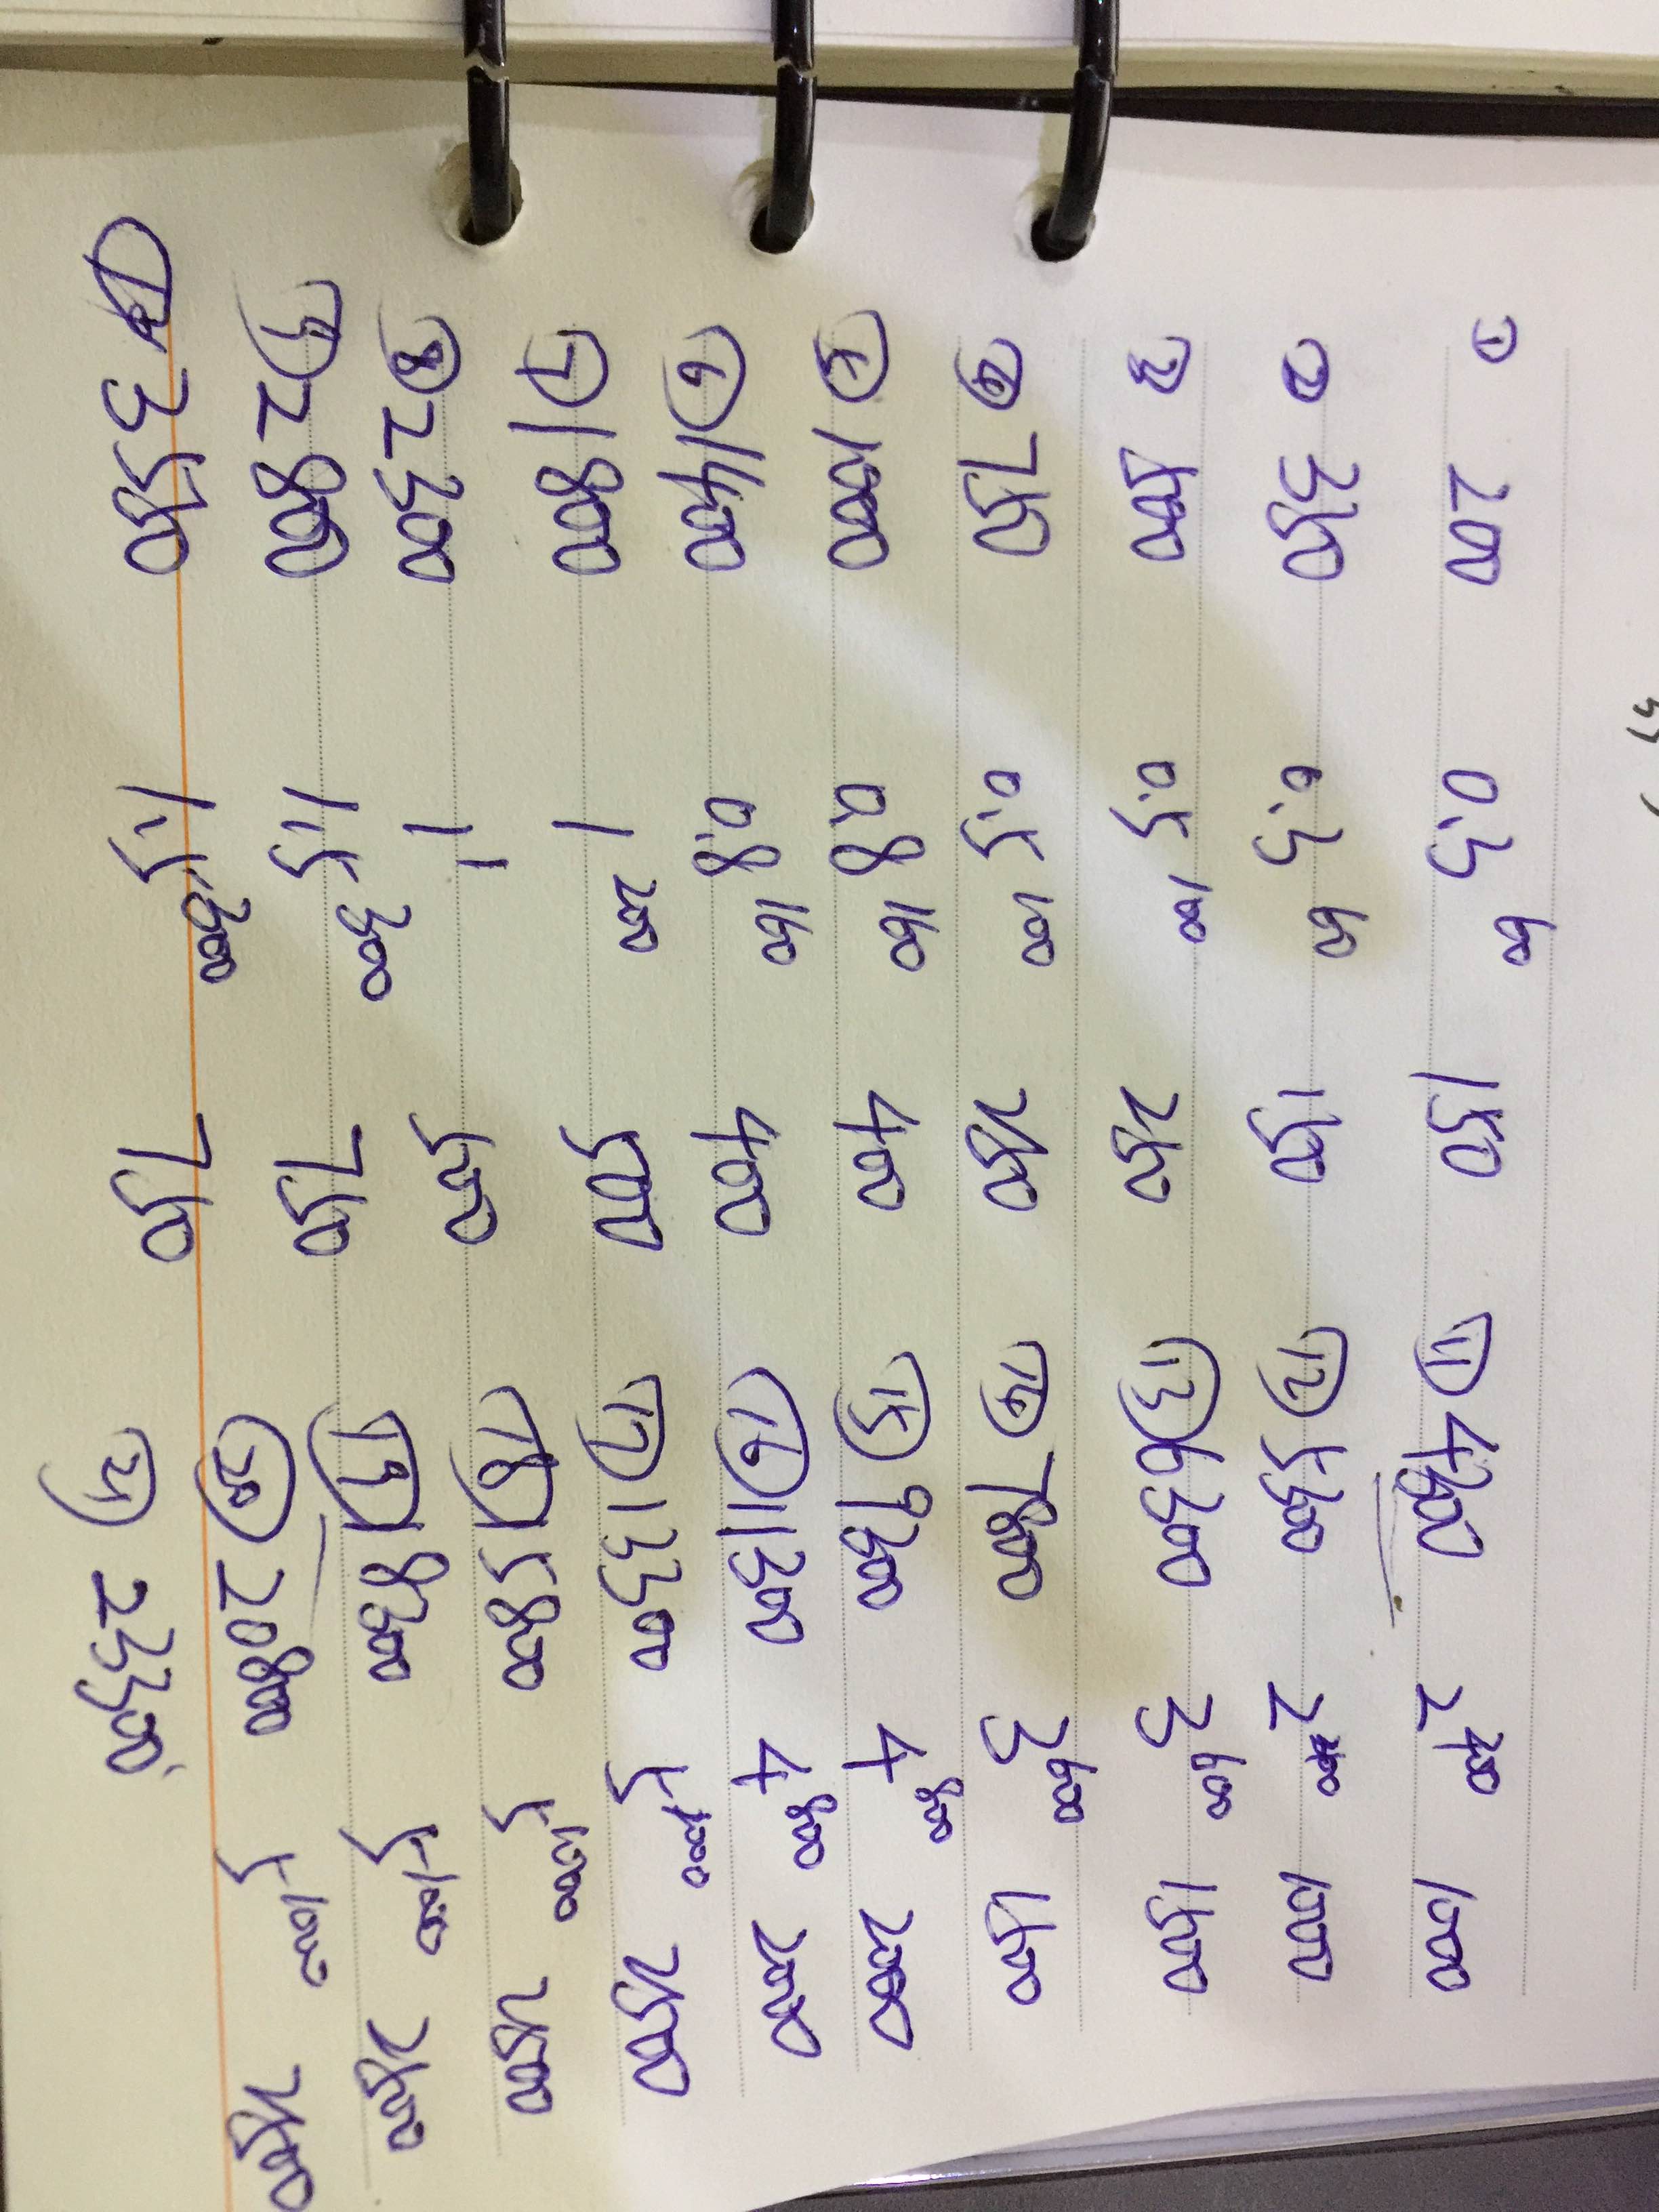 ① 200 0.3 60 150 ⑪ 4300 2 400 1000
② 350 0.3 60 150 ⑫ 5300 2 400 1000
③ 500 0.5 100 250 ⑬ 6300 3 600 1500
④ 750 0.5 100 250 ⑭ 7800 3 600 1500
⑤ 1000 0.8 160 400 ⑮ 9300 4 800 2000
⑥ 1400 0.8 160 400 ⑯ 11300 4 800 2000
⑦ 1800 1 200 500 ⑰ 13300 5 1000 2500
⑧ 2300 1 500 ⑱ 15800 5 1000 2500
⑨ 2800 1.5 300 750 ⑲ 18300 5 1000 2500
⑩ 3550 1.5 300 750 ⑳ 20800 5 1000 2500
㉑ 23300